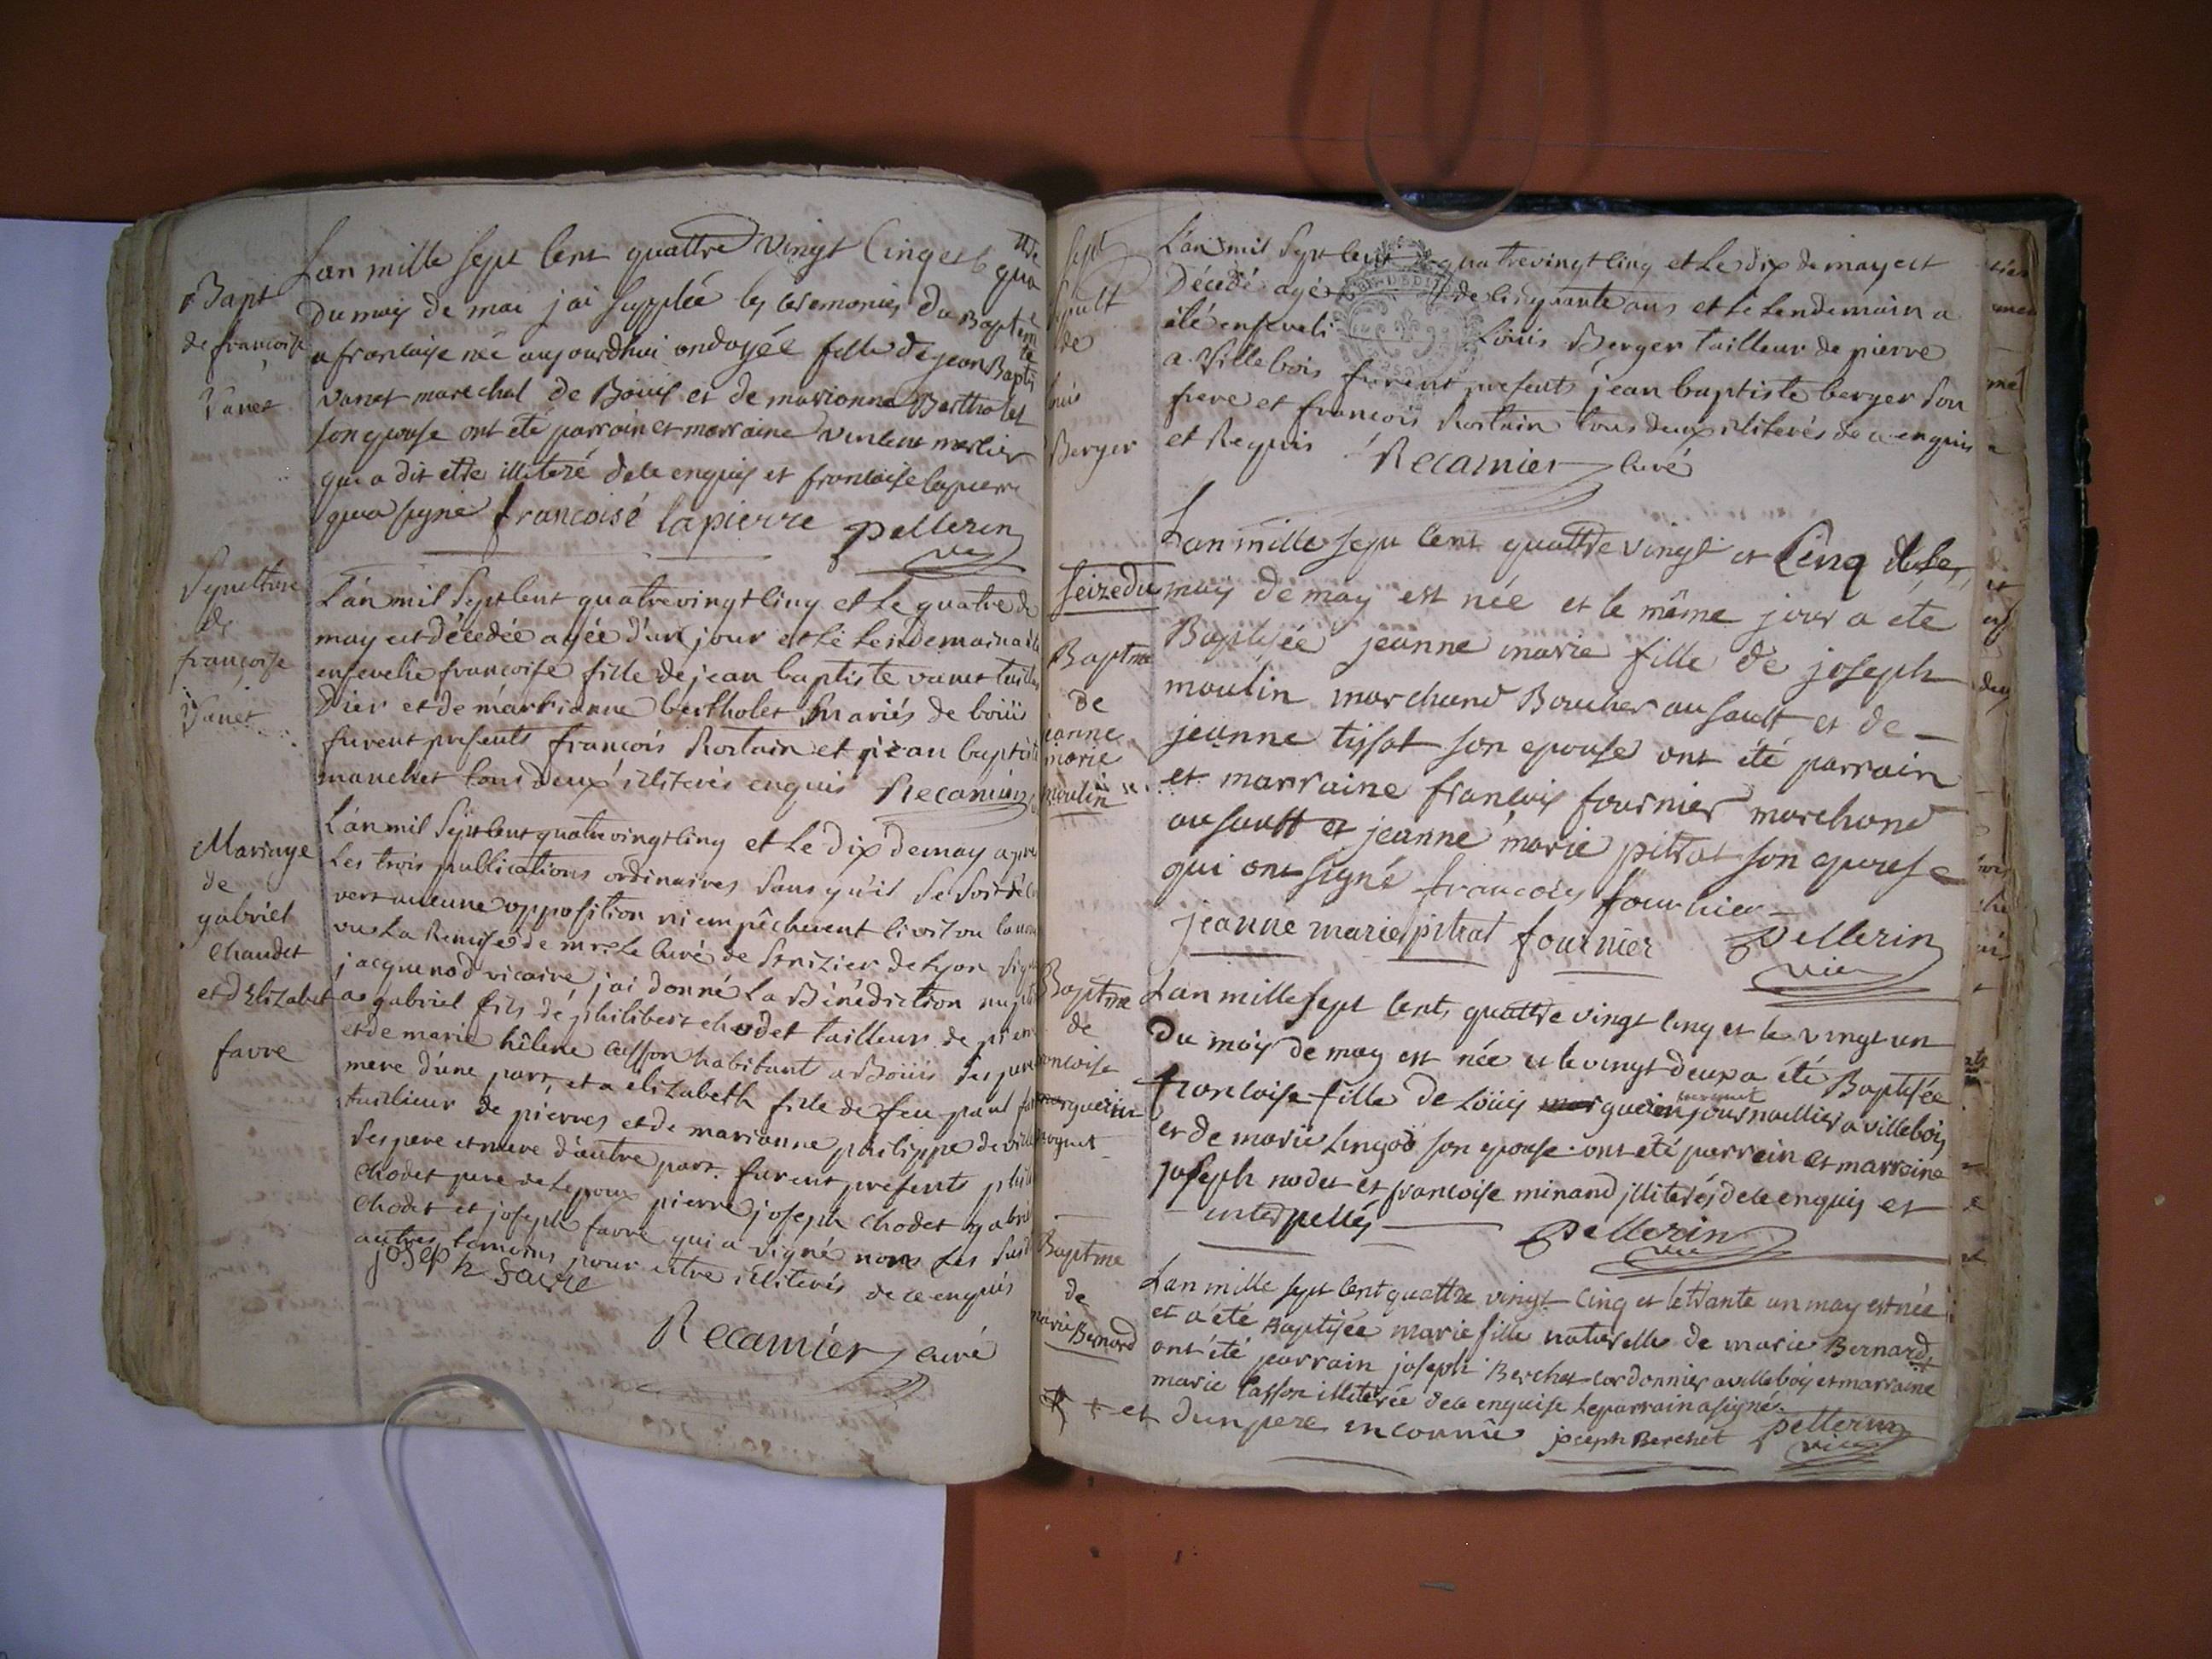 Bapt
de francoise
Vanet
Lan mille sept cent quattre vingt Cinq et le quattre
du mois de mai j'ai supplée les ceremonies du Baptem
a francoise née aujourdhui ondoyée fille de jean Baptiste
vanet marechal de Boüis et de marianne Bertholet
son epouse ont été parrain et marraine vincent merlier
qui a dit etre illiteré de ce enquis et francoise lapierre
qui a signé francoisé lapierre pellerin
vic
Sepulture
de
françoise
Vanet
L'an mil Sept cent quatrevingt cinq et Le quatre de
may est décedée agée d'un jour et le Lendemain a été
ensevelie françoise fille de jean baptiste vanet
et de marianne bertholet mariés de boüis
furent presents françois Rostain et jean baptiste
manchet tous deux illiterés enquis Recamier
Mariage
de
gabriel
Chaudet
et d'Elizabet
favre
L'an mil Sept cent quatrevingt cinq et Le dix de may apres
Les trois publications ordinaires Sans qu'il Se Soit déc
vert aucune opposition ni empêchement civil ou canon
vu La Remise de mr Le Curé de St nizier de Lyon Signé
jacquenod vicaire, j'ai donné La Bénédiction nuptiale
a gabriel fils de philibert chodet tailleur de pierre
et de marie hêlene casson habitants a Boüis Ses pere
mere d'une part, et a elizabeth fille de feu paul favre
taillieur de pierres et de marianne philippe de ville
Ses pere et mere d'autre part. furent presents phili
Chodet pere de Lepoux pierre joseph Chodet gabriel
Chodet et joseph favre qui a signé non Les Sus
autres temoins pour etre illiterés de ce enquis
joseph favre
Recamier curé
Sept
Sepult
de
louis
Berger
L'an mil Sept cent quatrevingt cinq et Le dix de may est
Décédé agé de cinquante ans et le Lendemain a
été enseveli Loüis Berger tailleur de pierre
a Villebois furent presents jean baptiste berger Son
frere et françois Rostain tous deux illiterés de ce enquis
et Requis Recamier Curé
Lan mille sept cent quattre vingt et Cinq et le
seize du mois de may est née et le même jour a été
Baptme
de
janne
marie
moulin
Baptisée jeanne marie fille de joseph
moulin marchand Boucher au sault et de
jeanne tissot son epouse ont été parrain
et marraine francois fournier marchand
au sault et jeanne marie pitrat son epouse
qui ont signé francois fournier
jeanne marie pitrat fournier pellerin
vic
Baptme
de
francoise
marguerin
Lan mille sept cent quattre vingt cinq et le vingt un
du mois de may est née et le vingt deux a été Baptisée
francoise fille de Loüis journallier a villebois
et de marie son epouse ont été parrain et marraine
joseph nodet et francoise minand illiterés de ce enquis et
interpellés pellerin
vic
Baptme
de
marie
Bernard
Lan mille sept cent quattre vingt cinq et le trante un may est née
et a été Baptisée marie fille naturelle de marie Bernard
ont été parrain joseph Berchet cordonnier a villebois et marraine
marie Casson illiterée de ce enquise le parrain a signé.
et d'un pere inconnû joseph Berchet pellerin
vic